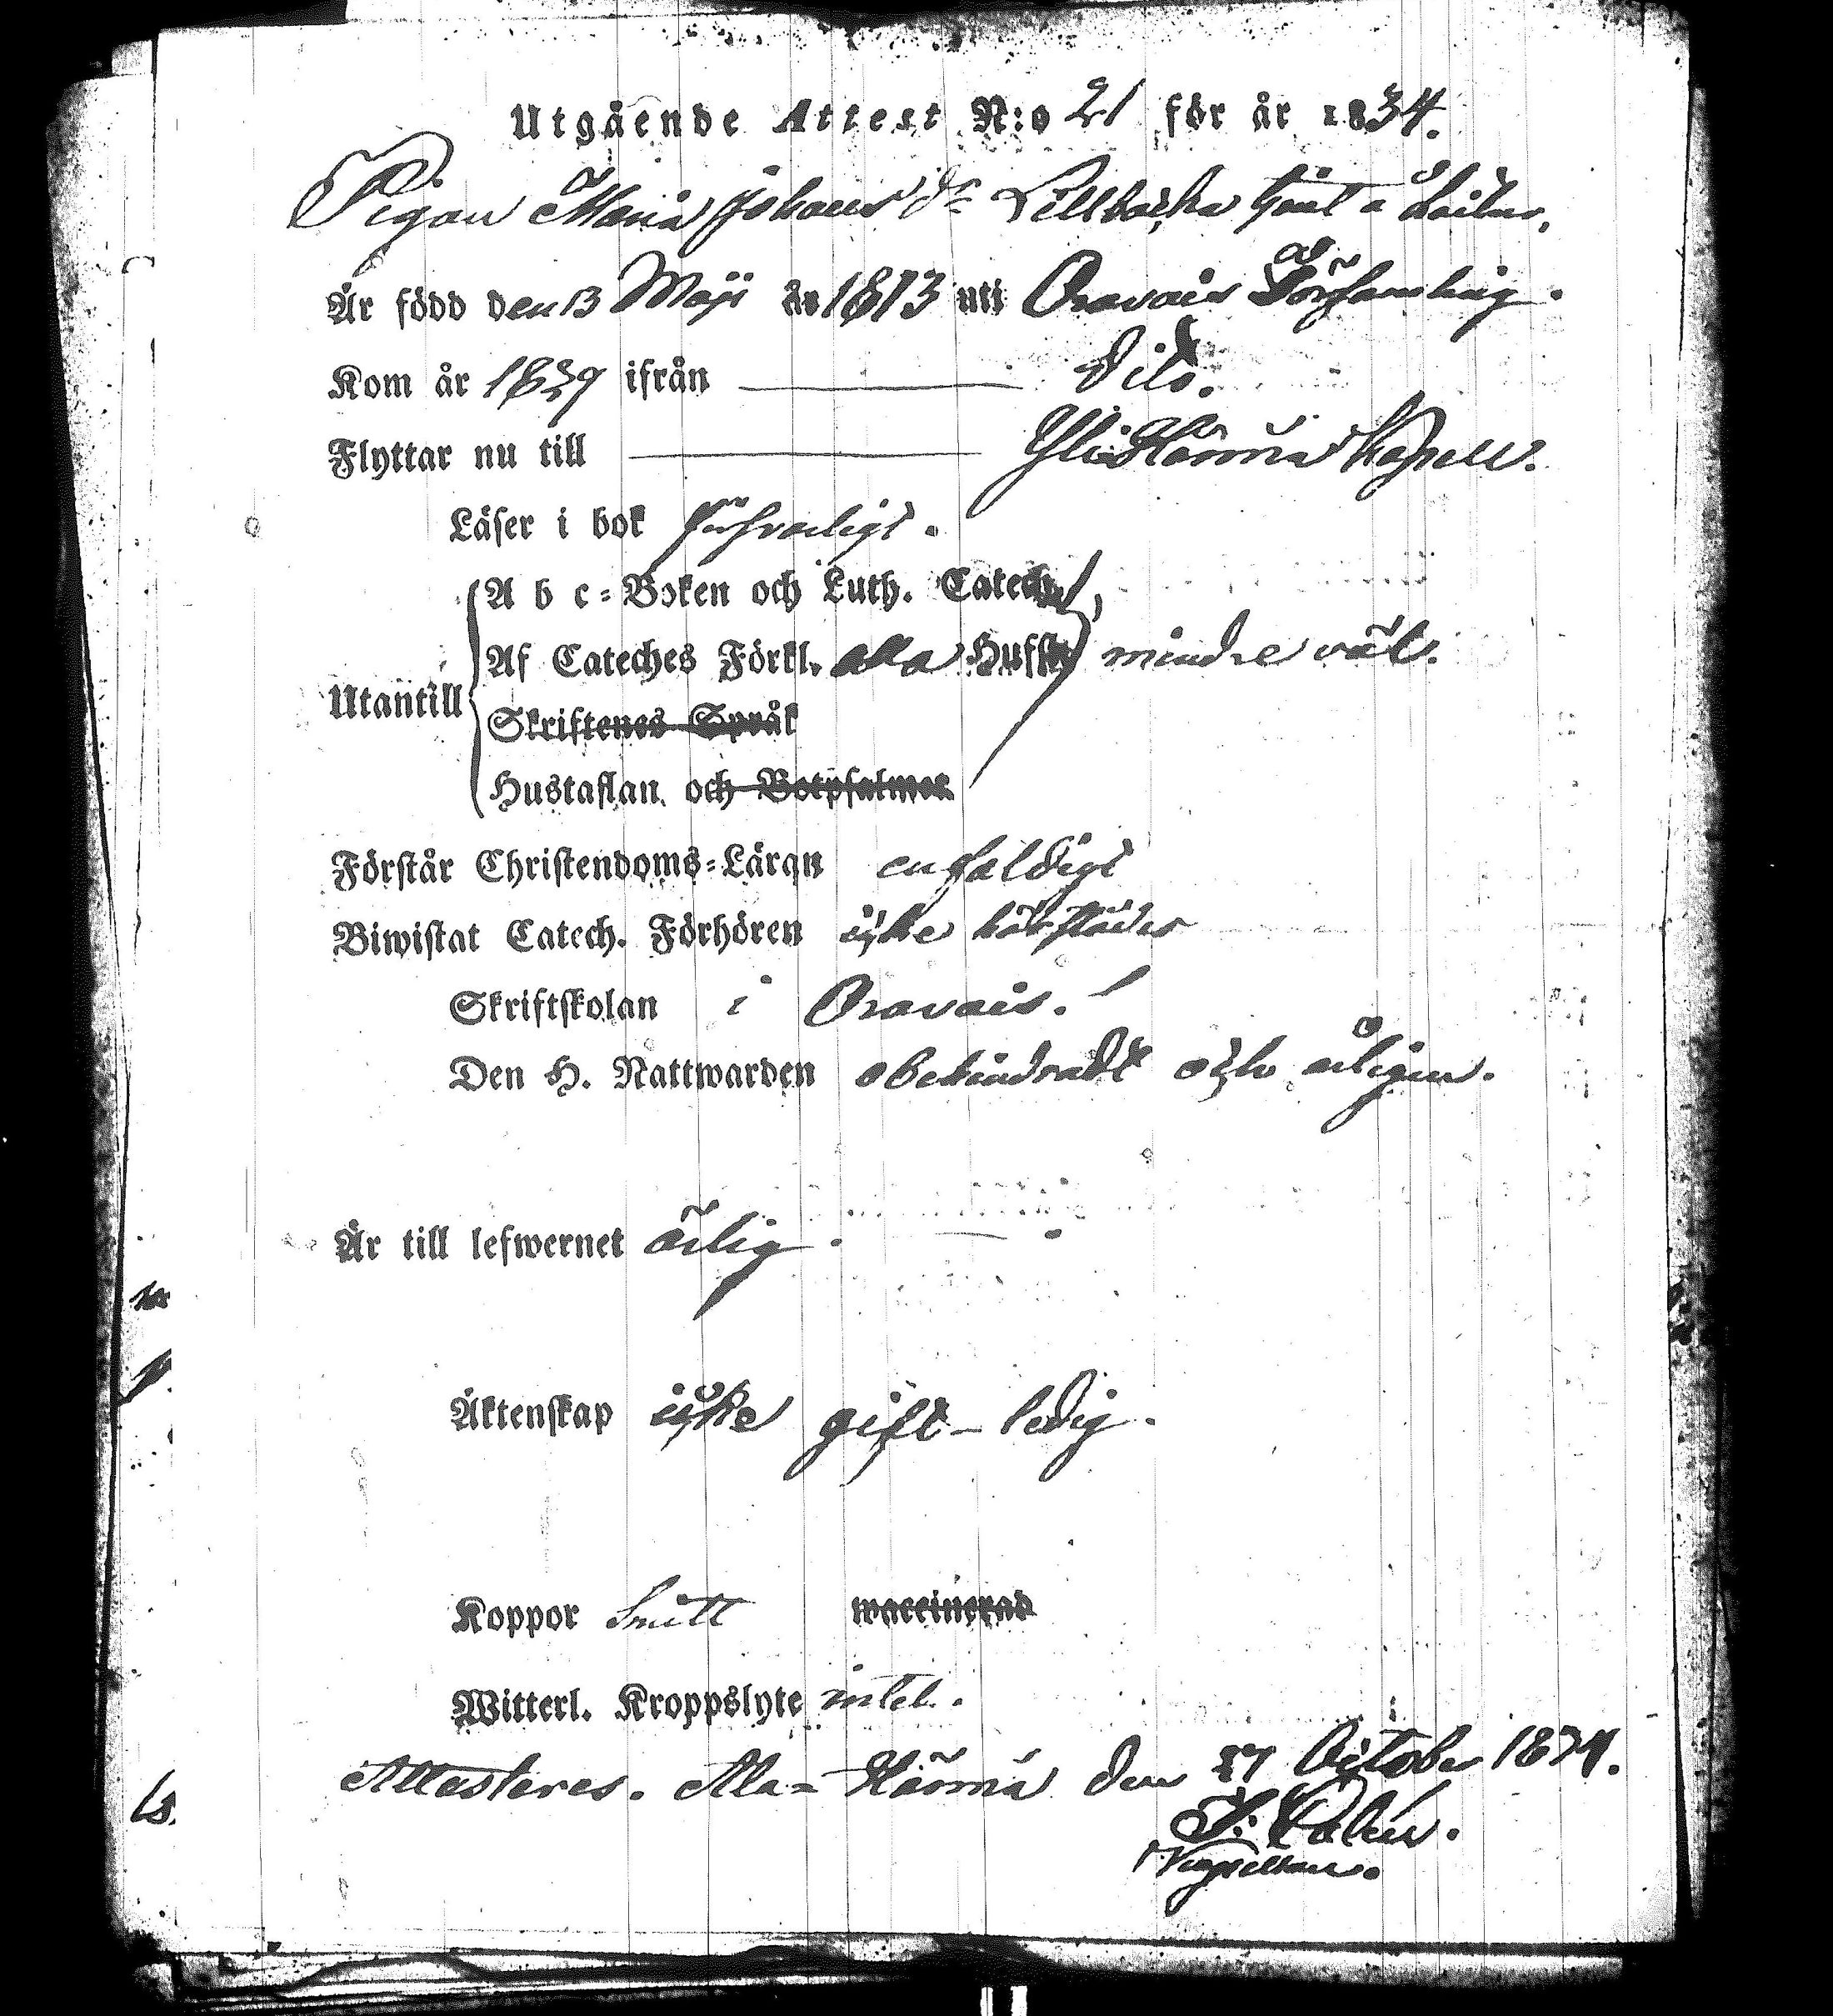 Utgående Attest N:o 21 för år 1834.
Pigan Maria Johans d:r Lillbacka tjent å
Är född den 13 Maji år 1813 uti Oravais Församling.
Kom år 1829 ifrån dito.
Flyttar nu till Yli Härmä Kapell.
Läser i bok försvarligt.
A b c-Boken och Luth. Catech.
Utantill Af Cateches Förkl. alla Hufst. mindre väl.
Skriftenes Språk
Hustaflan och Botpsalmer
Förstår Christendoms-Läran enfaldigt
Biwistat Catech. Förhören icke härstädes
Skriftskolan i Oravais.
Den H. Nattwarden obehindradt och årligen.
Är till lefwernet ärlig.
Äktenskap icke gift - ledig.
Koppor waccinerad
Witterl. Kroppslyte intet.
Attesteras. Ala-Härmä den October 1834.